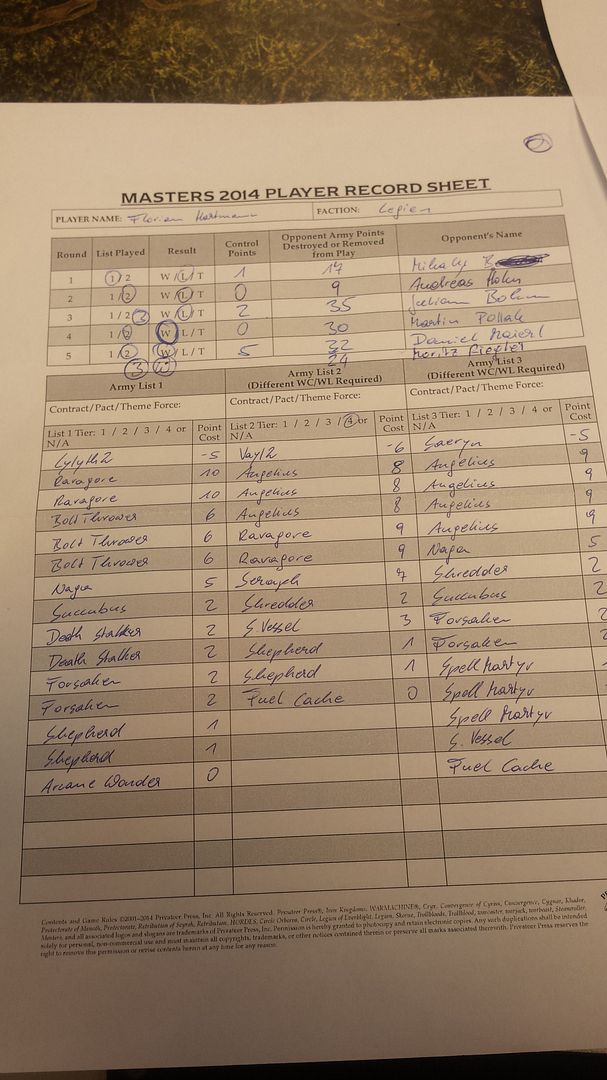 MASTERS 2014 PLAYER RECORD SHEET
PLAYER NAME: Florian Hartmann FACTION: Legion
Round List Played Result Control Points Opponent Army Points Destroyed or Removed from Play Opponent's Name
1 1/2 W/L/T 1 17 Mihaly
2 1/2 W/L/T 0 9 Andreas Hahn
3 1/2 3 W/L/T 2 35 Julian Bohm
4 1/2 W/L/T 0 30 Martin Pollak
5 1/2 W/L/T 5 32 Daniel
3 W 24 Moritz
Army List 1 Army List 2 (Different WC/WL Required) Army List 3 (Different WC/WL Required)
Contract/Pact/Theme Force: Contract/Pact/Theme Force: Contract/Pact/Theme Force:
List 1 Tier: 1 / 2 / 3 / 4 or N/A Point Cost List 2 Tier: 1 / 2 / 3 / 4 or N/A Point Cost List 3 Tier: 1 / 2 / 3 / 4 or N/A Point Cost
Lylyth2 -5 Vayl2 -6 Saeryn -5
Ravagore 10 Angelius 8 Angelius 9
Ravagore 10 Angelius 8 Angelius 9
Bolt Thrower 6 Angelius 8 Angelius 9
Bolt Thrower 6 Ravagore 9 Angelius 9
Bolt Thrower 6 Ravagore 9 Naga 5
Naga 5 Seraph 7 Shredder 2
Succubus 2 Shredder 2 Succubus 2
Death Stalker 2 S. Vessel 3 Forsaken 2
Death Stalker 2 Shepherd 1 Forsaken 2
Forsaken 2 Shepherd 1 Spell Martyr
Forsaken 2 Fuel Cache 0 Spell Martyr
Shepherd 1 Spell Martyr
Shepherd 1 S. Vessel
Arcane Wonder 0 Fuel Cache
Contents and Game Rules ©2001–2014 Privateer Press, Inc. All Rights Reserved. Privateer Press®, Iron Kingdoms, WARMACHINE®, Cryx, Convergence of Cyriss, Convergence, Cygnar, Khador,
Protectorate of Menoth, Protectorate, Retribution of Scyrah, Retribution, HORDES, Circle Orboros, Circle, Legion of Everblight, Legion, Skorne, Trollbloods, Trollblood, warcaster, warjack, warbeast, Steamroller,
Masters, and all associated logos and slogans are trademarks of Privateer Press, Inc. Permission is hereby granted to photocopy and retain electronic copies. Any such duplications shall be intended
solely for personal, non-commercial use and must maintain all copyrights, trademarks, or other notices contained therein or preserve all marks associated therewith. Privateer Press reserves the
right to remove this permission or revise contents herein at any time for any reason.